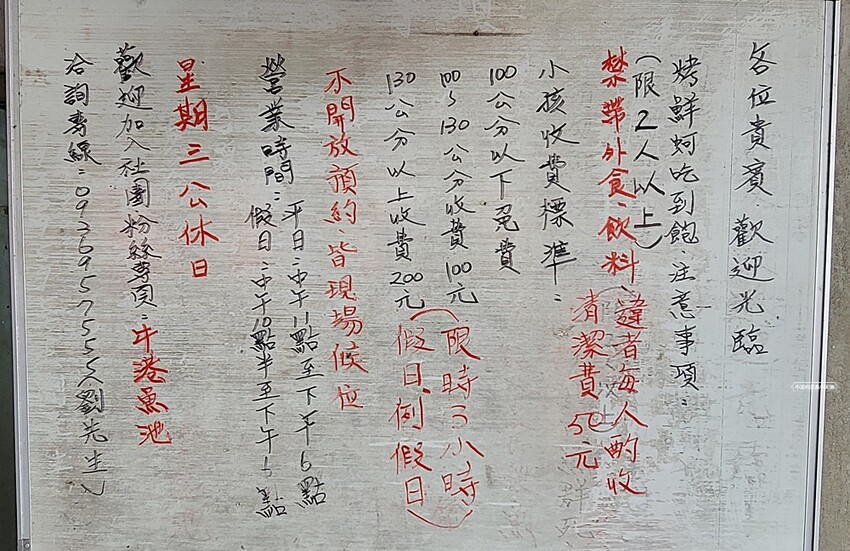 各位貴賓.歡迎光臨
烤鮮蚵吃到飽.注意事項:
(限2人以上)
禁帶外食、飲料、違者每人酌收
清潔費50元
小孩收費標準:
100公分以下免費
100~130公分收費100元
130公分以上收費200元
(限時3小時
假日.例假日)
不開放預約、皆現場候位
營業時間:平日:中午11點至下午6點
假日:中午10點半至下午6點
星期三公休日
歡迎加入社團粉絲專頁:牛港魚池
洽詢專線:0926957555(劉先生)